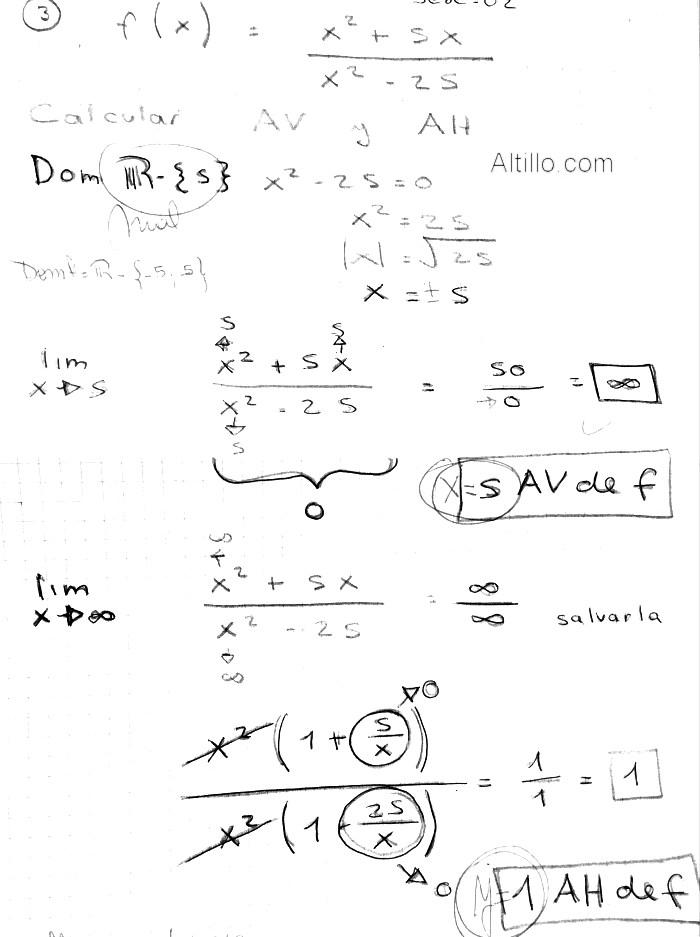 3
f(x) = x² + 5x / x² - 25
Calcular AV y AH
Altillo.com
Dom ℝ-{5} x² - 25 = 0
x² = 25
|x| = √25
Dom f = ℝ-{-5, 5}
x = ± 5
lim x→5 x² + 5x / x² - 25 = 50 / →0 = ∞
5 5
5
0
x=5 AV de f
lim x→∞ x² + 5x / x² - 25 = ∞ / ∞ salvarla
∞
∞
x² (1 + 5/x) / x² (1 - 25/x) = 1/1 = 1
→0
→0
y=1 AH de f